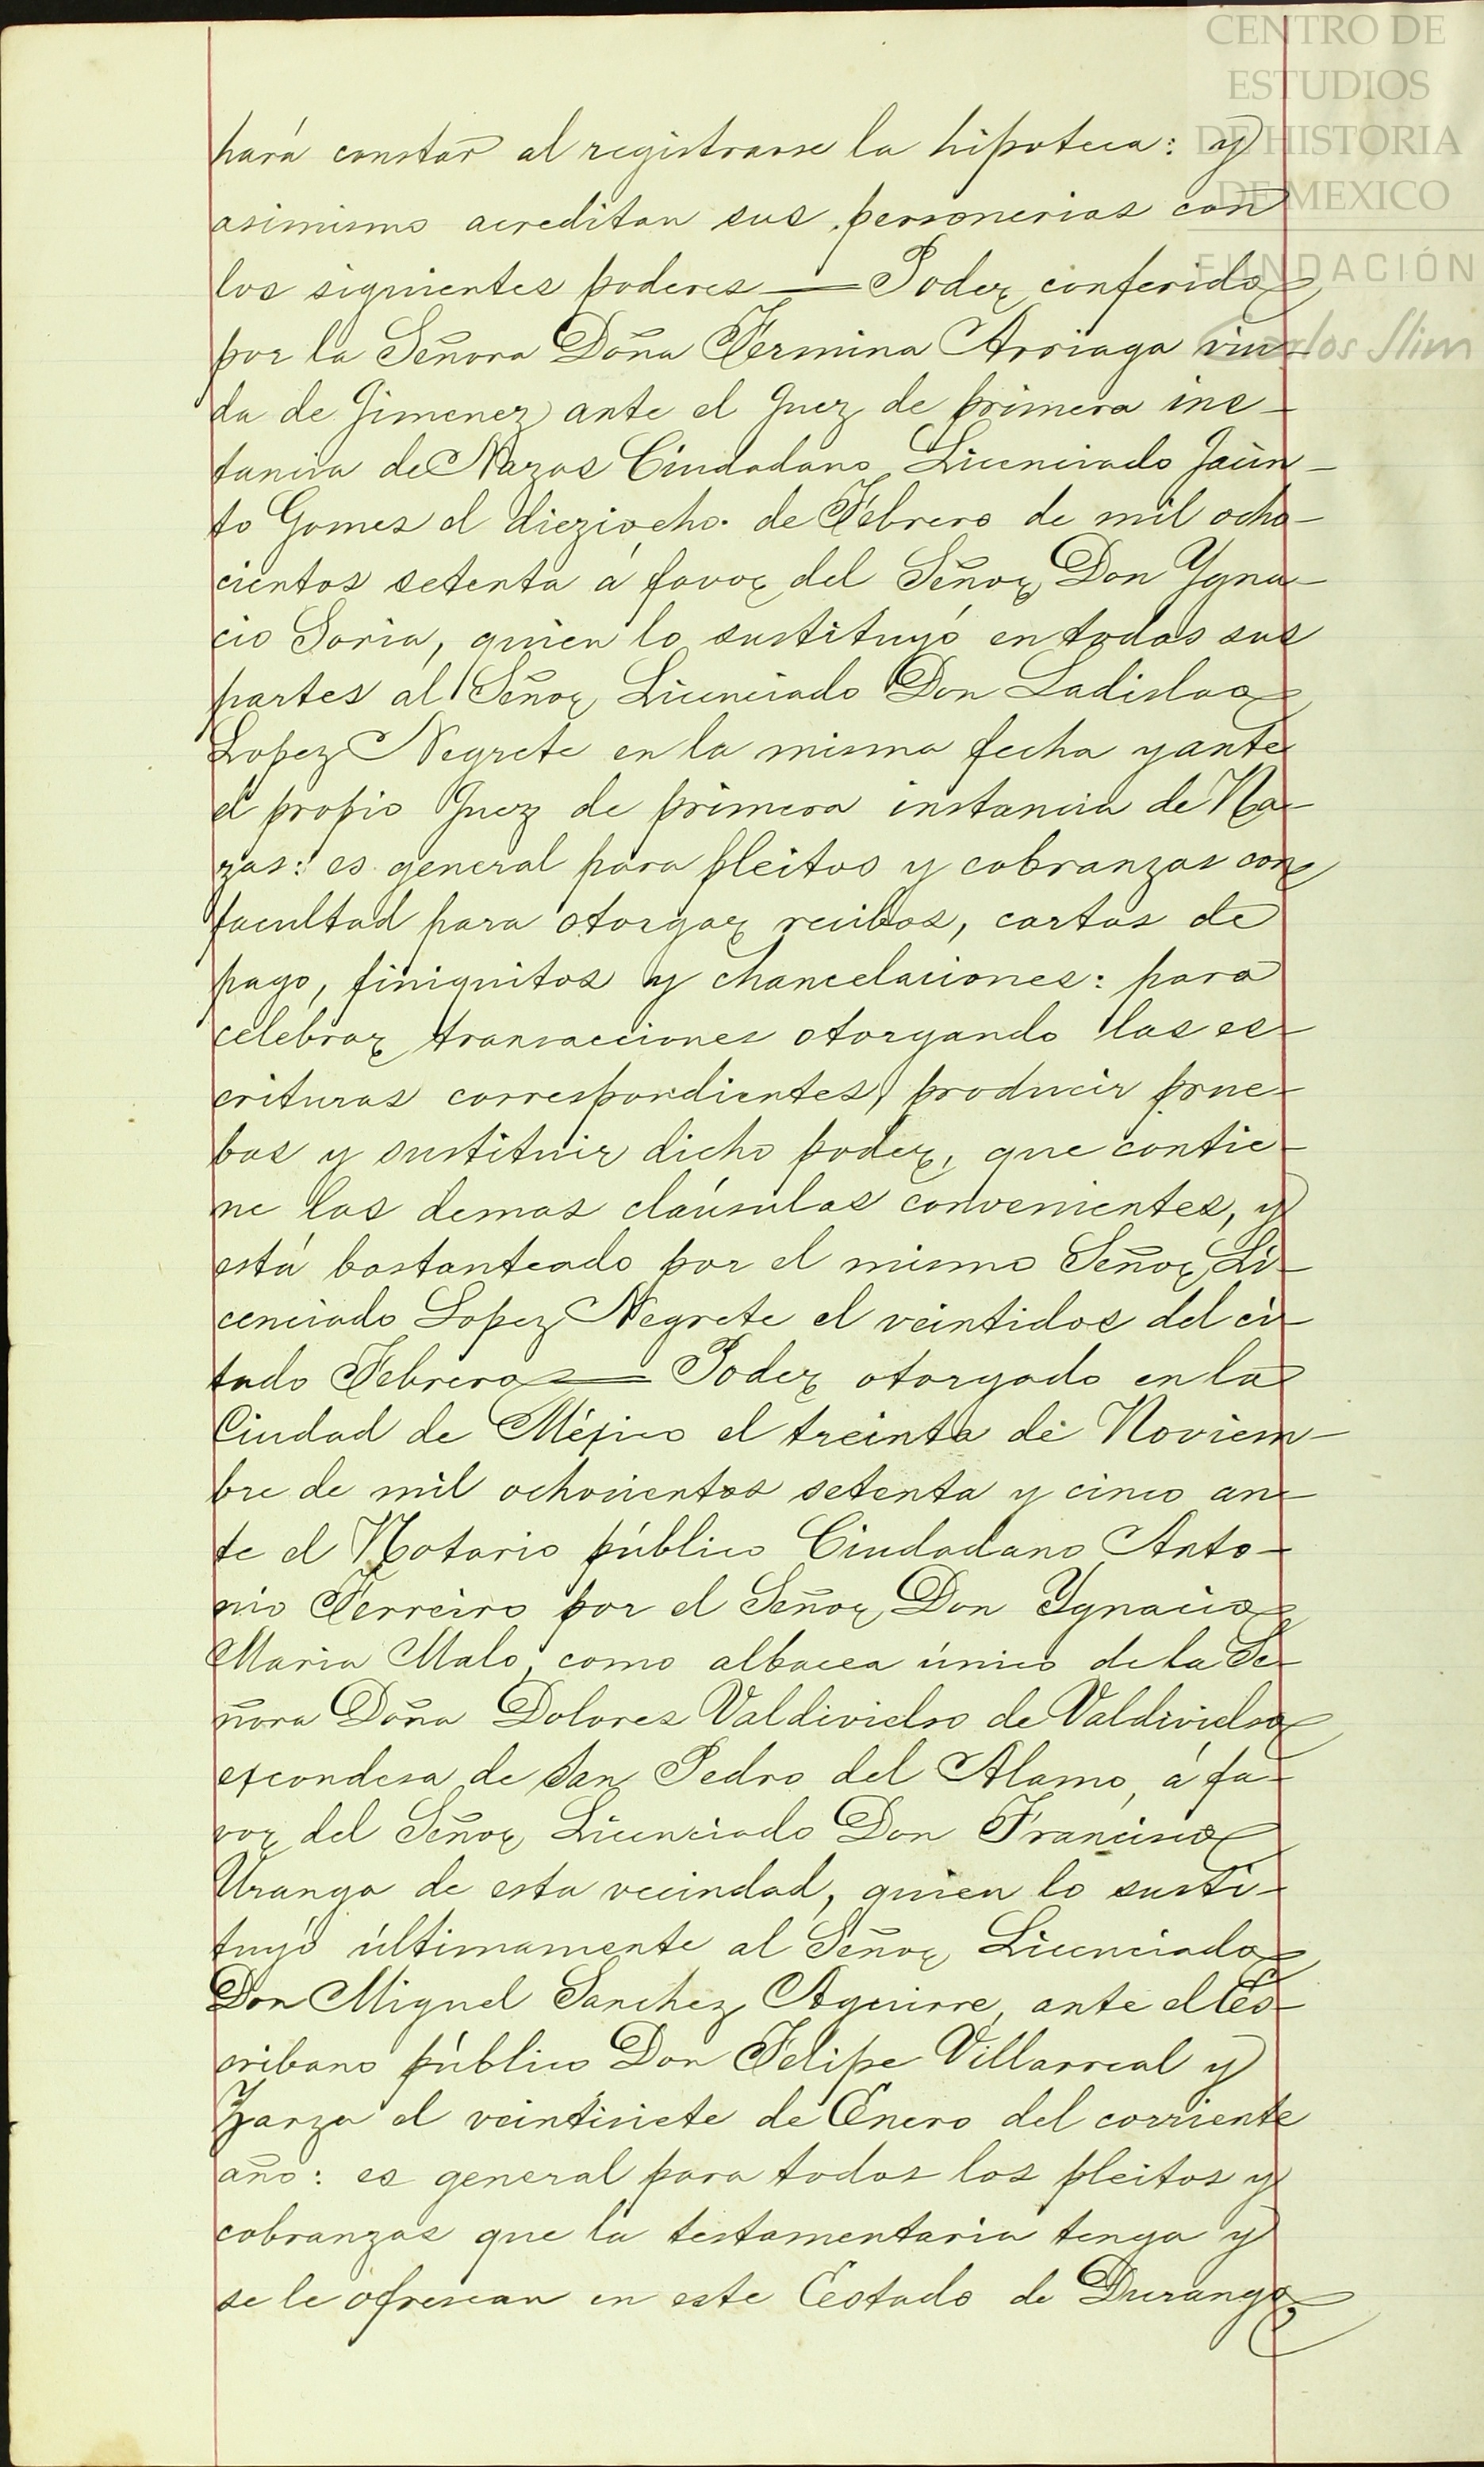 CENTRO DE
ESTUDIOS
DE HISTORIA
DE MEXICO
FUNDACIÓN
Carlos Slim
hará constar al registrarse la hipoteca: y
asimismo acreditan sus personerias con
los siguientes poderes — Poder conferido
por la Señora Doña Fermina Arriaga viu-
da de Jimenez ante el Juez de primera ins-
tancia de Nazas Ciudadano Licenciado Jacin-
to Gomes el dieziocho de Febrero de mil ocho-
cientos setenta á favor del Señor Don Ygna-
cio Soria, quien lo sustituyó en todas sus
partes al Señor Licenciado Don Ladislao
Lopez Negrete en la misma fecha y ante
el propio Juez de primera instancia de Na-
zas: es general para pleitos y cobranzas con
facultad para otorgar recibos, cartas de
pago, finiquitos y chancelaciones: para
celebrar transacciones otorgando las es-
crituras correspondientes, producir prue-
bas y sustituir dicho poder, que contie-
ne las demas claúsulas convenientes, y
está bastanteado por el mismo Señor Li-
cenciado Lopez Negrete el veintidos del ci-
tado Febrero — Poder otorgado en la
Ciudad de Méjico el treinta de Noviem-
bre de mil ochocientos setenta y cinco an-
te el Notario público Ciudadano Anto-
nio Ferreiro por el Señor Don Ygnacio
Maria Malo, como albacea único de la Se-
ñora Doña Dolores Valdivielso de Valdivielso
excondesa de San Pedro del Alamo, á fa-
vor del Señor Licenciado Don Francisco
Uranga de esta vecindad, quien lo susti-
tuyó últimamente al Señor Licenciado
Don Miguel Sanchez Aguirre, ante el Es-
cribano público Don Felipe Villarreal y
Zarza el veintisiete de Enero del corriente
año: es general para todos los pleitos y
cobranzas que la testamentaria tenga y
se le ofrescan en este Estado de Durango